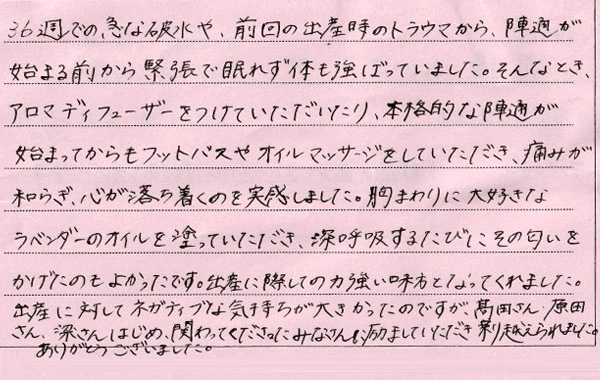 36週での急な破水や、前回の出産時のトラウマから、陣通が
始まる前から緊張で眠れず体も強ばっていました。そんなとき、
アロマディフューザーをつけていただいたり、本格的な陣通が
始まってからもフットバスやオイルマッサージをしていただき、痛みが
和らぎ、心が落ち着くのを実感しました。胸まわりに大好きな
ラベンダーのオイルを塗っていただき、深呼吸するたびにその匂いを
かげたのもよかったです。出産に際しての力強い味方となってくれました。
出産に対してネガティブな気持ちが大きかったのですが、髙田さん・原田
さん、深さんはじめ、関わってくださったみなさんに励ましていただき乗り越えられました。
ありがとうございました。